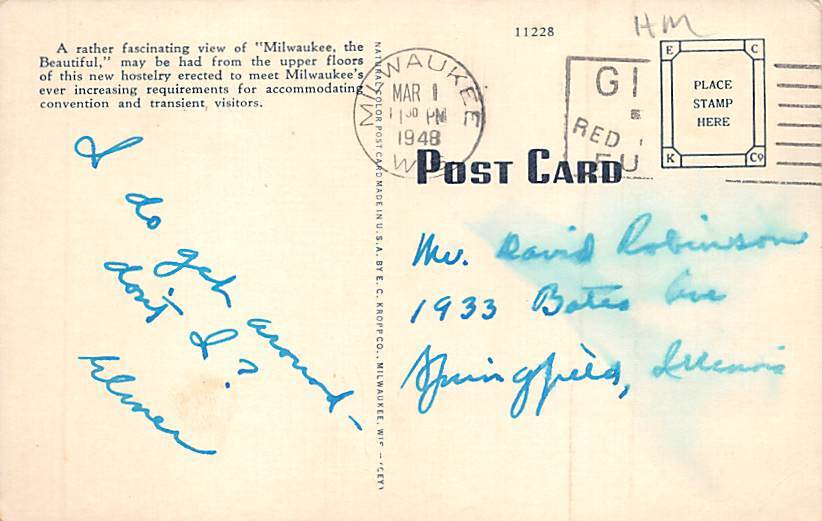 11228
HM
A rather fascinating view of "Milwaukee, the
Beautiful," may be had from the upper floors
of this new hostelry erected to meet Milwaukee's
ever increasing requirements for accommodating
convention and transient visitors.
MILWAUKEE
MAR 1
11 30 PM
1948
WIS
GI
RED
FU
E C
PLACE
STAMP
HERE
K Co
POST CARD
I do get around—
don't I?
Elmer
NATURAL COLOR POST CARD MADE IN U.S.A. BY E. C. KROPP CO., MILWAUKEE, WIS.—(CEY)
Mr. David Robinson
1933 Bates Ave
Springfield, Illinois